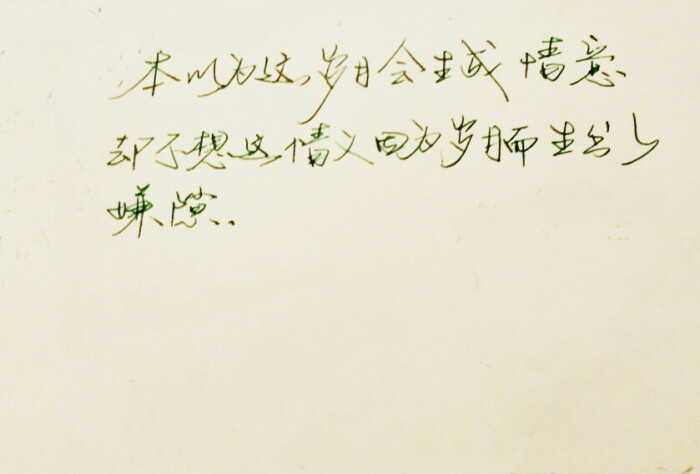 本以为这岁月会生成情意
却不想这情义因为岁月而生出了
嫌隙..